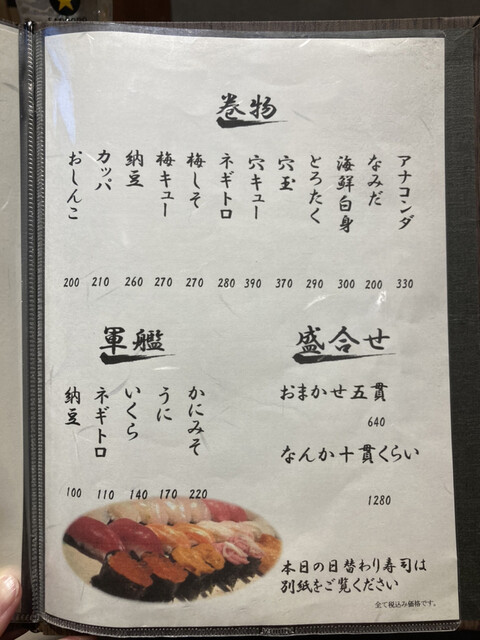 巻物
アナコンダ 330
なみだ 200
海鮮白身 300
とろたく 290
穴玉 370
穴キュー 390
ネギトロ 280
梅しそ 270
梅キュー 270
納豆 260
カッパ 210
おしんこ 200
盛合せ
おまかせ五貫
640
なんか十貫くらい
1280
軍艦
かにみそ 220
うに 170
いくら 140
ネギトロ 110
納豆 100
本日の日替わり寿司は
別紙をご覧ください
全て税込み価格です。